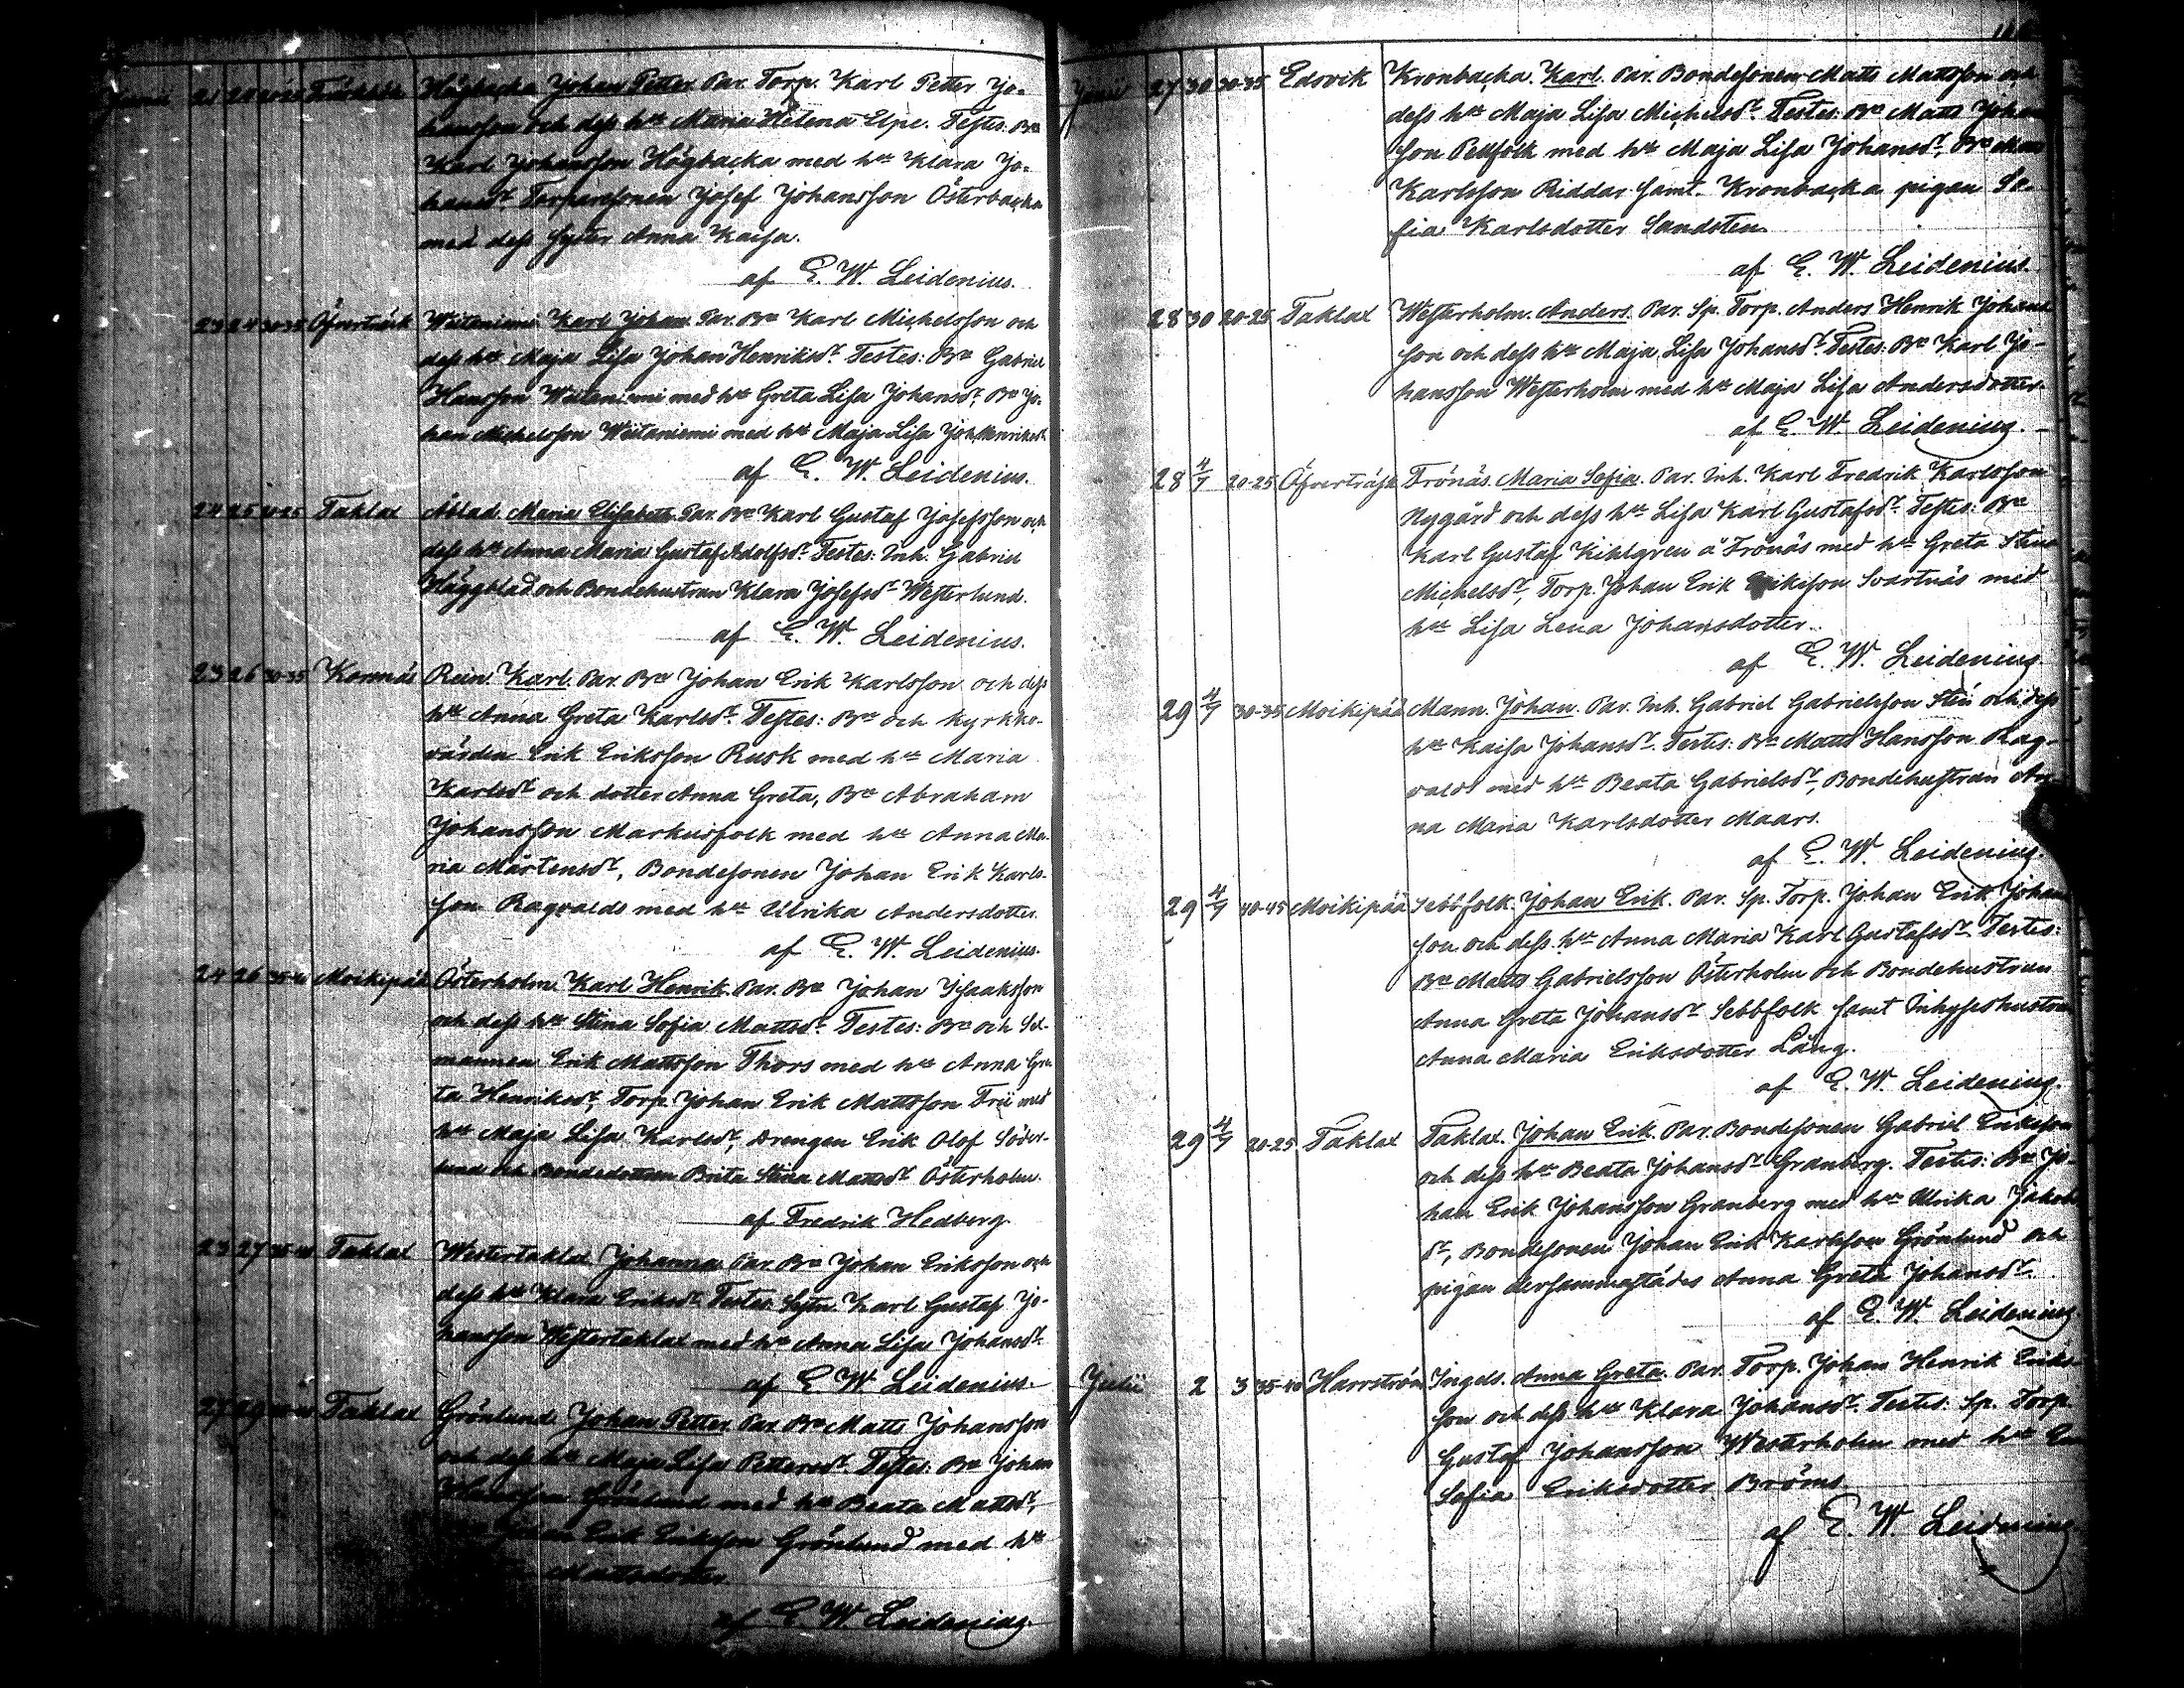 Junii 21 24 Träskböle Högbacka Johan Petter. Par. Torp. Karl Petter Jo-
hansson och dess hu Maria Helena Elpe. Testes: Bn
Karl Johansson Högbacka med hu Klara Jo-
hansdr, Torparesonen Josef Johansson Österbacka
med dess syster Anna Kaisa.
af E. W. Leidenius.
23 24 30-35 Öfverträsk Weitaniemi Karl Johan. Par. Bn Karl Michelsson och
dess hu Maja Lisa Johan Henriksdr. Testes: Bn Gabriel
Hansson Weitaniemi med hu Greta Lisa Johansdr, Bn Jo-
han Michelsson Weitaniemi med hu Maja Lisa Joh. Henriksdr.
af E. W. Leidenius.
24 25 Taklax Åblad. Maria Elisabeth. Par. Bn Karl Gustaf Josefsson och
dess hu Anna Maria Gustaf Adolfsdr. Testes: Inh. Gabriel
Häggblad och Bondehustrun Klara Josefsdr Westerlund.
af E. W. Leidenius.
23 26 30-35 Korsnäs Rein. Karl. Par. Bn Johan Erik Karlsson och dess
hu Anna Greta Karlsdr. Testes: Bn och kyrko-
värden Erik Eriksson Rusk med hu Maria
Karlsdr och dotter Anna Greta, Bn Abraham
Johansson Markusfolk med hu Anna Ma-
ria Mårtensdr, Bondesonen Johan Erik Karls-
son Ragvalds med hu Ulrika Andersdotter.
af E. W. Leidenius.
24 26 35-40 Moikipää Österholm. Karl Henrik. Par. Bn Johan Isaaksson
och dess hu Stina Sofia Mattsdr. Testes: Bn och Sex-
mannen Erik Mattsson Thors med hu Anna Gre-
ta Henriksdr, Torp. Johan Erik Mattsson Frii med
hu Maja Lisa Karlsdr, Drengen Erik Olof Söder-
lund och Bondedottren Brita Stina Mattsdr Österholm.
af Fredrik Hedberg.
23 27 35-40 Taklax Westertaklax Johanna. Par. Bn Johan Eriksson och
dess hu Klara Eriksdr. Testes: Sytn. Karl Gustaf Jo-
hansson Westertaklax med hu Anna Lisa Johansdr.
af E. W. Leidenius.
27 29 Taklax Grönlund. Johan Petter. Par. Bn Matts Johansson
och dess hu Maja Lisa Pettersdr. Testes: Bn Johan
Hansson Grönlund med hu Beata Mattsdr,
Erik Eriksson Grönlund med hu
Mattsdotter.
af E. W. Leidenius.
Junii 27 30 30-35 Edsvik Kronbacka. Karl. Par. Bondesonen Matts Mattsson och
dess hu Maja Lisa Michelsdr. Testes: Bn Matts Johans-
son Pellfolk med hu Maja Lisa Johansdr, Bn
Karlsson Riddar samt Kronbacka pigan So-
fia Karlsdotter Sandsten.
af E. W. Leidenius.
28 30 20-25 Taklax Westerholm. Anders. Par. Sp. Torp. Anders Henrik Johans-
son och dess hu Maja Lisa Johansdr. Testes: Bn Karl Jo-
hansson Westerholm med hu Maja Lisa Andersdotter.
af E. W. Leidenius.
28 4/7 20-25 Öfverträsk Frönäs. Maria Sofia. Par. Inh. Karl Fredrik Karlsson
Nygård och dess hu Lisa Karl Gustafsdr. Testes: Bn
Karl Gustaf Kihlgren å Frönäs med hu Greta Stina
Michelsdr, Torp. Johan Erik Eriksson Svartnäs med
hu Lisa Lena Johansdotter.
af E. W. Leidenius.
29 4/7 30-35 Moikipää Mann. Johan. Par. Inh. Gabriel Gabrielsson Sten och dess
hu Kaisa Johansdr. Testes: Bn Matts Hansson Rag-
valds med hu Beata Gabrielsdr, Bondehustrun An-
na Maria Karlsdotter Maars.
af E. W. Leidenius.
29 4/7 40-45 Moikipää Sebbfolk. Johan Erik. Par. Sp. Torp. Johan Erik Johans-
son och dess hu Anna Maria Karl Gustafsdr. Testes:
Bn Matts Gabrielsson Österholm och Bondehustrun
Anna Greta Johansdr Sebbfolk samt Inhyseshustrun
Anna Maria Eriksdotter Lång.
af E. W. Leidenius.
29 4/7 20-25 Taklax Taklax. Johan Erik. Par. Bondesonen Gabriel Eriksson
och dess hu Beata Johansdr Granberg. Testes: Bn Jo-
han Erik Johansson Granberg med hu Ulrika Jakobs-
dr, Bondesonen Johan Erik Karlsson Grönlund och
pigan dersammastädes Anna Greta Johansdr.
af E. W. Leidenius
Julii 2 3 35-40 Harrström Ingels. Anna Greta. Par. Torp. Johan Henrik Eriks-
son och dess hu Klara Johansdr. Testes: Sp. Torp.
Gustaf Johansson Westerholm med hu
Sofia Eriksdotter Bröms.
af E. W. Leidenius